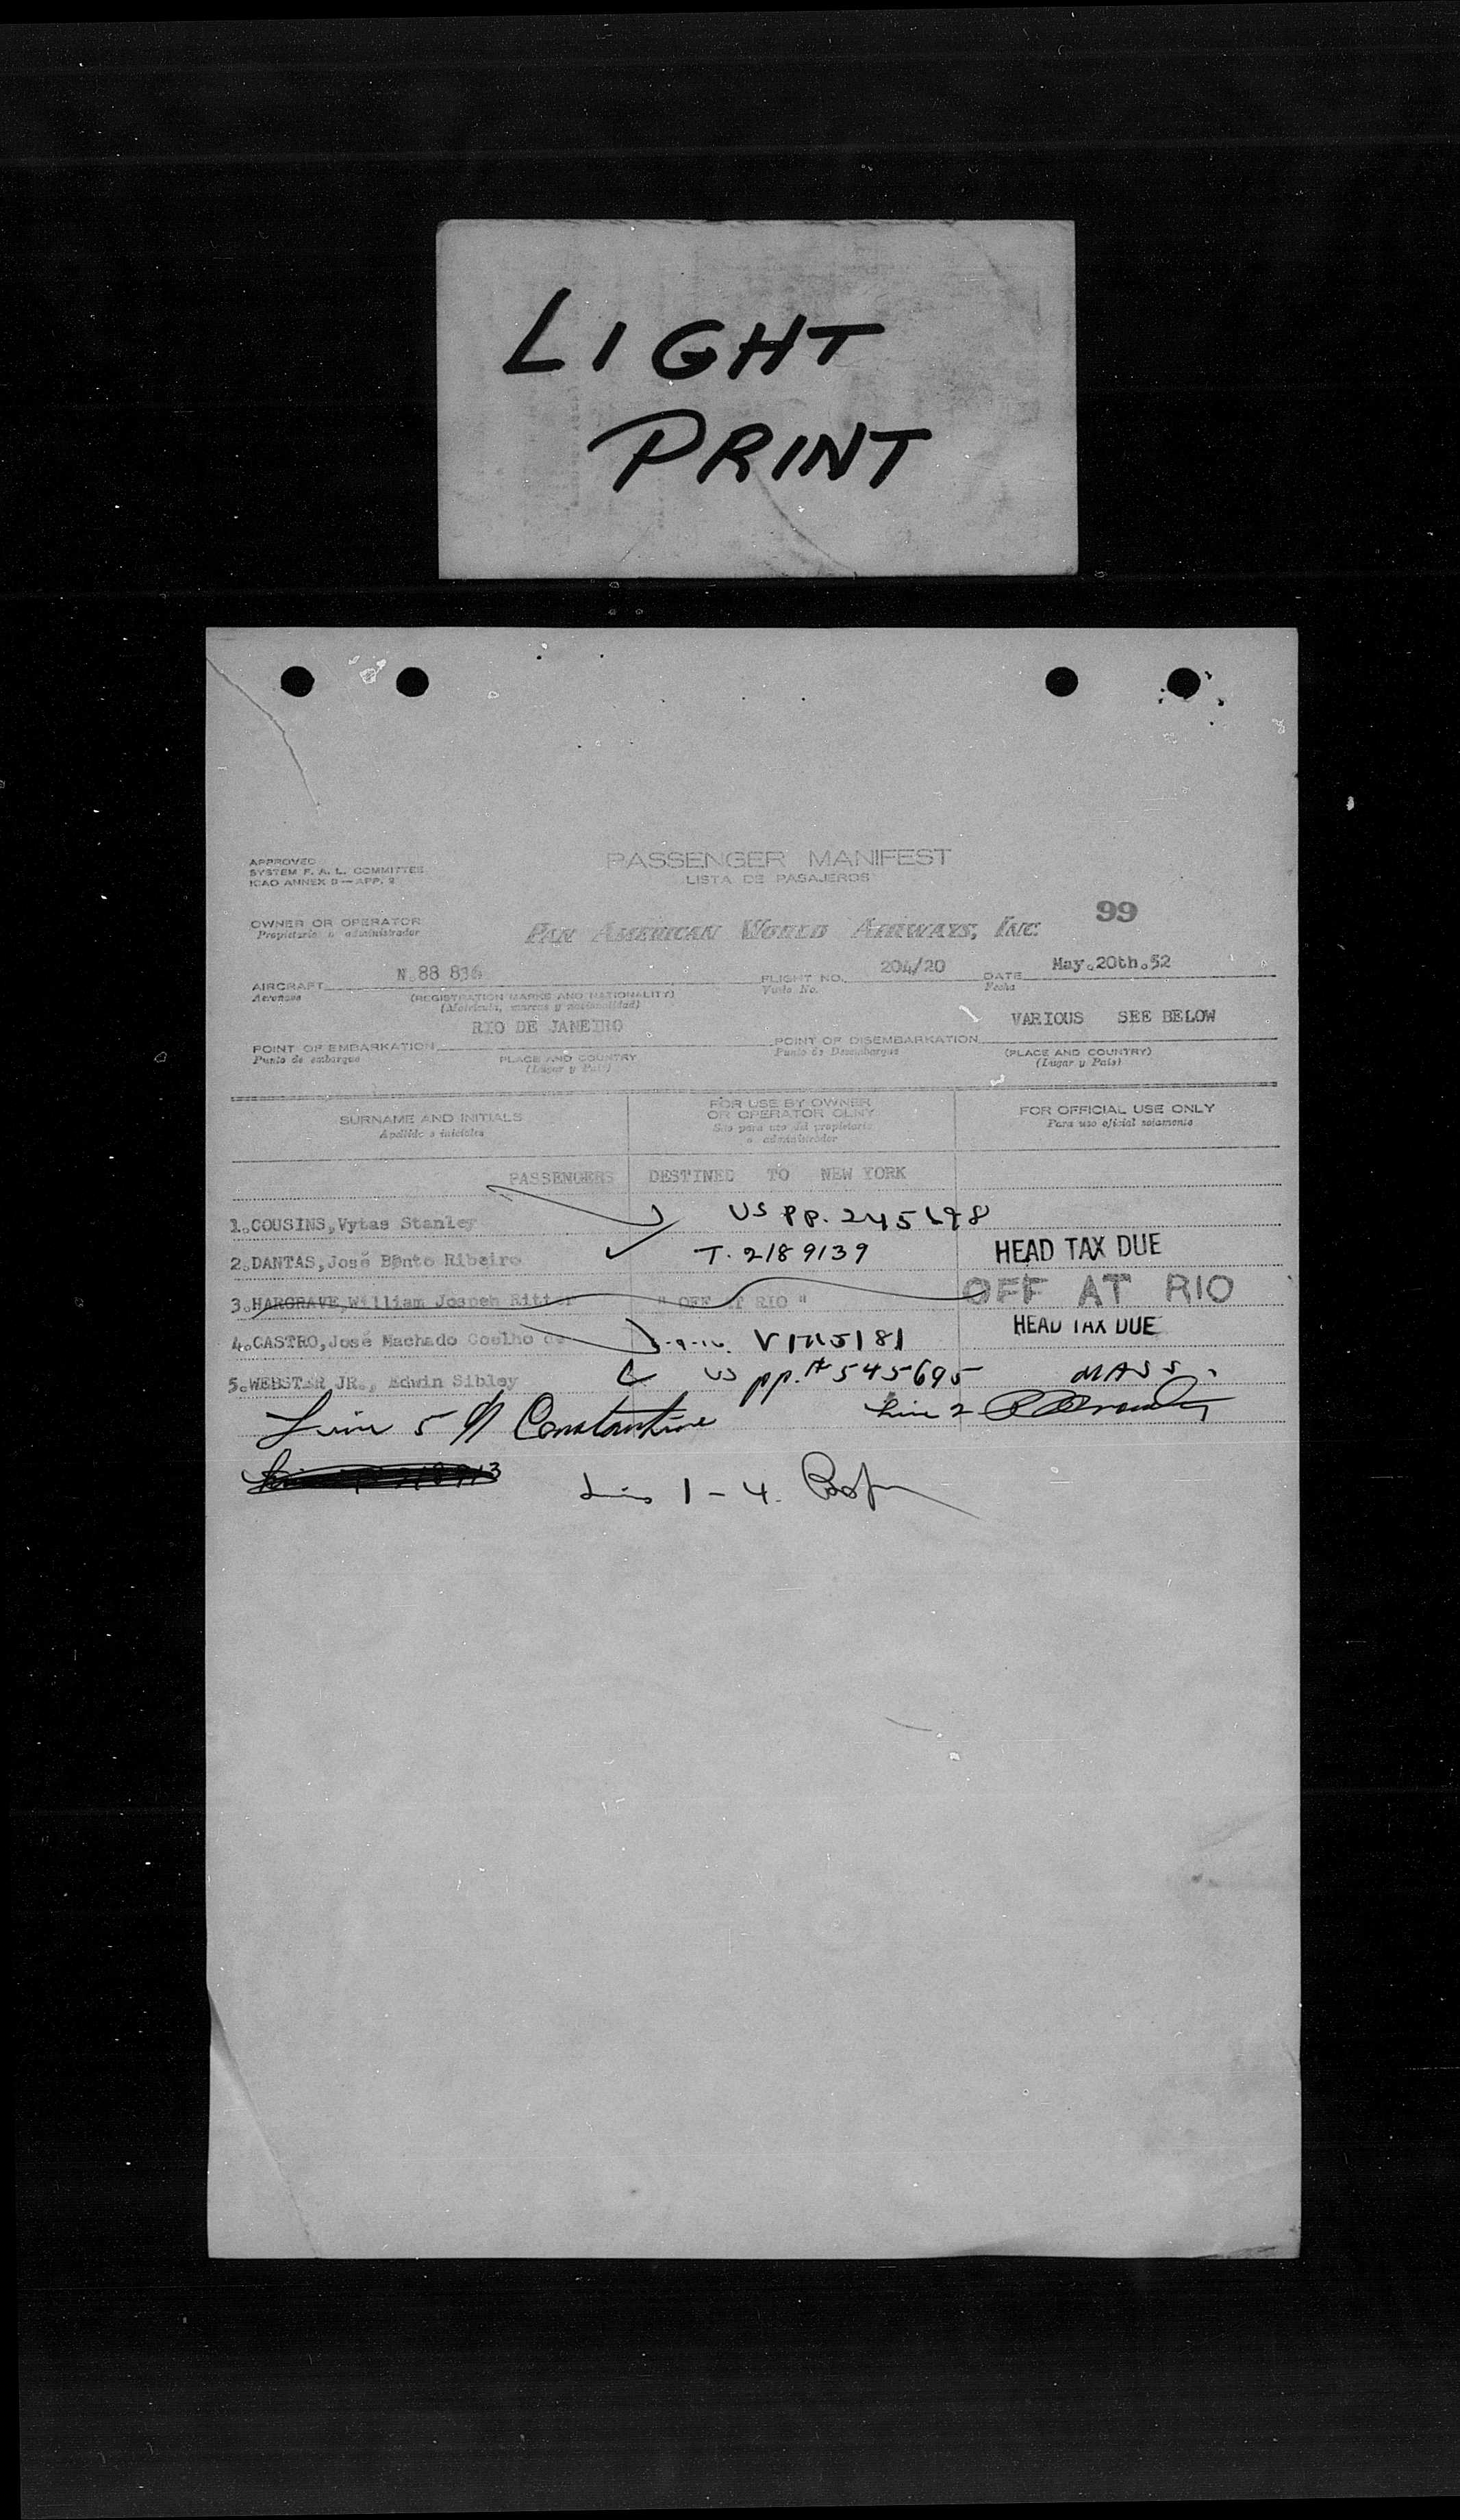 LIGHT
PRINT
APPROVED
SYSTEM F. A. L. COMMITTEE
ICAO ANNEX 9 — APP. 2
PASSENGER MANIFEST
LISTA DE PASAJEROS
99
OWNER OR OPERATOR
Propietario o administrador
PAN AMERICAN WORLD AIRWAYS, INC.
AIRCRAFT N.88 FLIGHT NO. 204/20 DATE May.20th.52
Aeronave (REGISTRATION MARKS AND NATIONALITY) Vuelo No. Fecha
(Matricula, marcas y nacionalidad)
POINT OF EMBARKATION RIO DE JANEIRO POINT OF DISEMBARKATION VARIOUS SEE BELOW
Punto de embarque PLACE AND COUNTRY Punto de Desembarque (PLACE AND COUNTRY)
(Lugar y Pais) (Lugar y Pais)
SURNAME AND INITIALS FOR USE BY OWNER OR OPERATOR OLNY FOR OFFICIAL USE ONLY
Apellido e iniciales Sólo para uso del propietario o administrador Para uso oficial solamente
PASSENGERS DESTINED TO NEW YORK
1.COUSINS,Vytas Stanley US PP.
2.DANTAS,José Bento Ribeiro T. 2189139 HEAD TAX DUE
3.HARGRAVE,William Jospeh Ritter " OFF AT RIO " OFF AT RIO
4.CASTRO,José Machado Coelho de HEAD TAX DUE
5.WEBSTER JR., Edwin Sibley US pp.# 545695 MASS.
Line 5 Constantine Line 2
1 - 4.